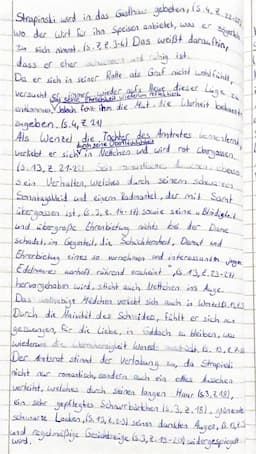 Strapinski wird in das Gasthaus gebeten, (S. 4, Z.
wo der Wirt für ihn Speisen anbietet, was er
zu sich nimmt. (S. 7, Z. 3-4) Das weißt daraufhin,
dass er eher und ruhig ist.
Da er sich in seiner Rolle als Graf nicht wohlfühlt,
versucht er immer wieder aufs Neue dieser Lage zu
entkommen, jedoch fehlt ihm die Mut, die Wahrheit
zugeben. (S. 4, Z. 21)
Als Wenzel die Tochter des Amtrates kennenlernt,
verliebt er sich in Nettchen und wird rot übergossen.
(S. 13, Z. 21-22) Sein romantisches
Sein Verhalten, welches durch seinem schwarzen
Sonntagskleid und eigem Radmantel, der mit Samt
übergossen ist, (S. 3, Z. 14-17) sowie seine „Blödigkeit
und übergroße Ehrerbietung nichts bei der Dame
schadet, im Gegenteil, die Schüchternheit, Demut und
Ehrerbietung eines so vornehmen und interessanten jungen
Edelmannes wahrhaft rührend erscheint", (S. 13, Z. 23-27)
hervorgehoben wird, sticht auch Nettchen ins Auge.
Das Mädchen verliebt sich auch in
Durch die Naivität des Schneiders, fühlt er sich
gezwungen, für die Liebe, in Goldach zu bleiben, was
wiederum die Wenzels
Der Amtsrat stimmt der Verlobung zu, da Strapinski
nicht nur romantisch, sondern auch ein edles Aussehen
verleiht, welches durch seinen langen Haar (S. 3, Z. 18),
ein sehr gepflegtes Schnurrbärtchen (S. 3, Z. 18), glänzende
schwarze Locken, (S. 13, Z. seinen dunklen Augen,
und regelmäßige Gesichtszüge (S. 3, Z. 19-20) widergespiegelt
wird.